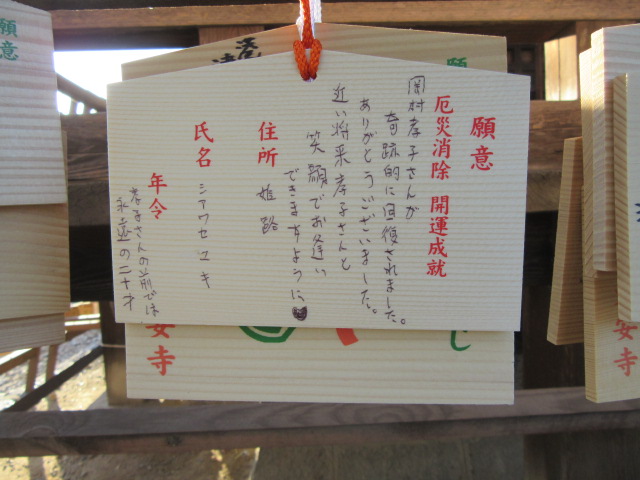 願意
厄災消除 開運成就
岡村孝子さんが
奇跡的に回復されました。
ありがとうございました。
近い将来孝子さんと
笑顔でお逢い
できますように
住所 姫路
氏名 シアワセユキ
年令 孝子さんの前では
永遠のニ十才
願意
願意
安寺
安寺